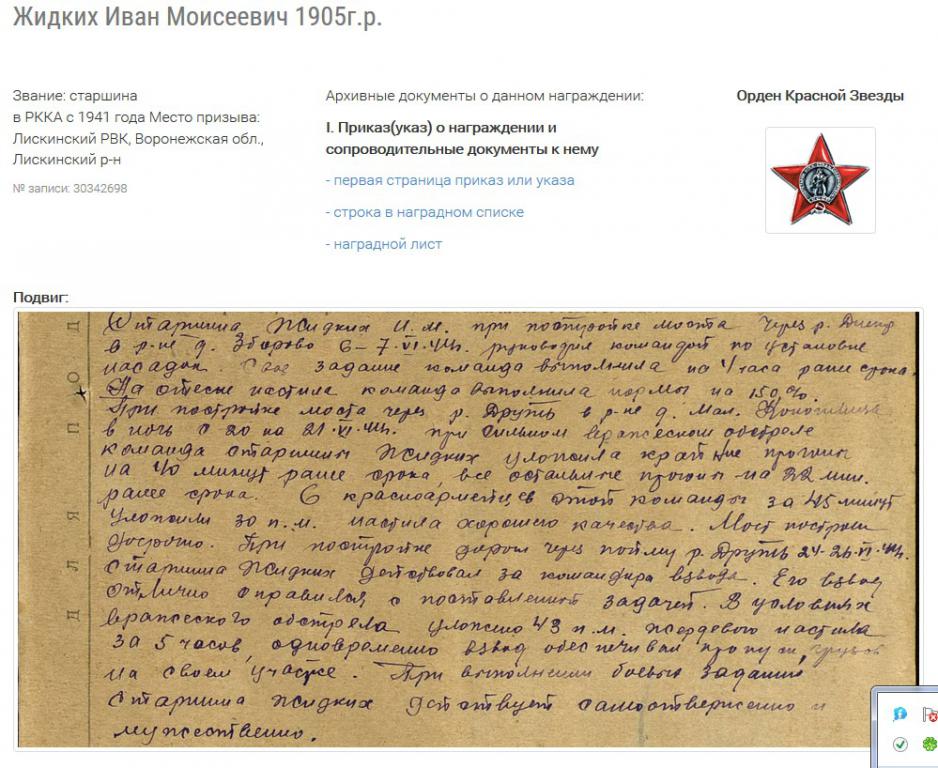 Жидких Иван Моисеевич 1905г.р.
Звание: старшина
в РККА с 1941 года Место призыва:
Лискинский РВК, Воронежская обл.,
Лискинский р-н
№ записи: 30342698
Архивные документы о данном награждении:
I. Приказ(указ) о награждении и
сопроводительные документы к нему
- первая страница приказ или указа
- строка в наградном списке
- наградной лист
Орден Красной Звезды
Подвиг:
Старшина Жидких И.М. при постройке моста через р. Днепр
в р-не д. Зборово 6-7.VI.44г. руководил командой по установке
насадок. Свое задание команда выполнила на 4 часа раньше срока.
На отеске настила команда выполнила нормы на 150%.
При постройке моста через р. Друть в р-не д. Мал.
в ночь с 20 на 21.VI.44г. при сильном вражеском обстреле
команда старшины Жидких уложила крайние прогоны
на 40 минут ранее срока, все остальные прогоны на 22 мин.
ранее срока. 6 красноармейцев этой команды за 45 минут
уложили 30 п.м. настила хорошего качества. Мост построен
досрочно. При постройке дороги через пойму р. Друть 24-26.VI.44г.
старшина Жидких действовал за командира взвода. Его взвод
отлично справился с поставленной задачей. В условиях
вражеского обстрела уложено 43 п.м. жердевого настила
за 5 часов, одновременно взвод обеспечивал пропуск грузов
на своем участке. При выполнении боевых заданий
старшина Жидких действует самоотверженно и
мужественно.
для под